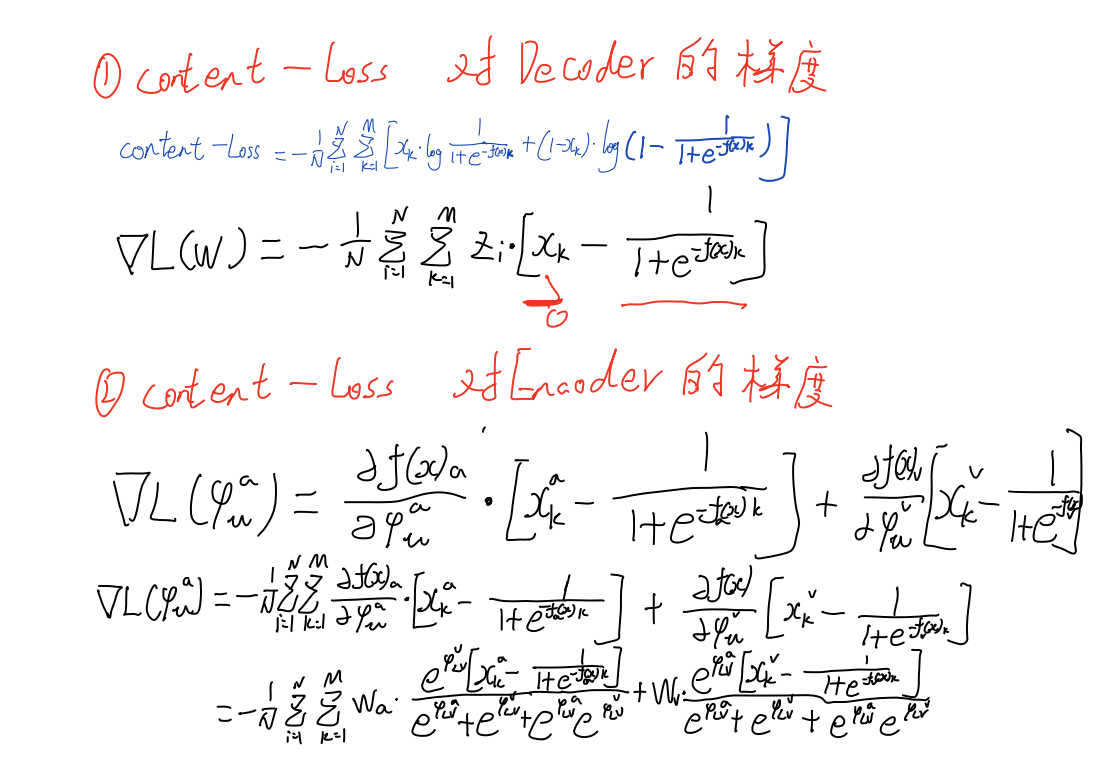 ① content-Loss 对 Decoder 的梯度
content-Loss = -\frac{1}{N}\sum_{i=1}^{N}\sum_{k=1}^{M}[x_k·log\frac{1}{1+e^{-f(x)_k}}+(1-x_k)·log(1-\frac{1}{1+e^{-f(x)_k}})]
∇L(W) = -\frac{1}{N}\sum_{i=1}^{N}\sum_{k=1}^{M} z_i·[x_k - \frac{1}{1+e^{-f(x)_k}}]
0
② content-Loss 对Encoder 的梯度
∇L(φ_u^a) = \frac{∂f(x)_a}{∂φ_u^a}·[x_k^a - \frac{1}{1+e^{-f_a(x)_k}}] + \frac{∂f(x)_v}{∂φ_u^v}[x_k^v - \frac{1}{1+e^{-f(x)}}]
∇L(φ_u^a) = -\frac{1}{N}\sum_{i=1}^{N}\sum_{k=1}^{M}\frac{∂f(x)_a}{∂φ_u^a}·[x_k^a - \frac{1}{1+e^{-f_a(x)_k}}] + \frac{∂f(x)}{∂φ_u^v}[x_k^v - \frac{1}{1+e^{-f_v(x)_k}}]
= -\frac{1}{N}\sum_{i=1}^{N}\sum_{k=1}^{M} W_a·\frac{e^{φ_{uv}^v}[x_k^a - \frac{1}{1+e^{-f_a(x)_k}}]}{e^{φ_{uv}^a}+e^{φ_{uv}^v}+e^{φ_{uv}^a}e^{φ_{uv}^v}} + W_v·\frac{e^{φ_{uv}^a}[x_k^v - \frac{1}{1+e^{-f(x)_k}}]}{e^{φ_{uv}^a}+e^{φ_{uv}^v}+e^{φ_{uv}^a}e^{φ_{uv}^v}}